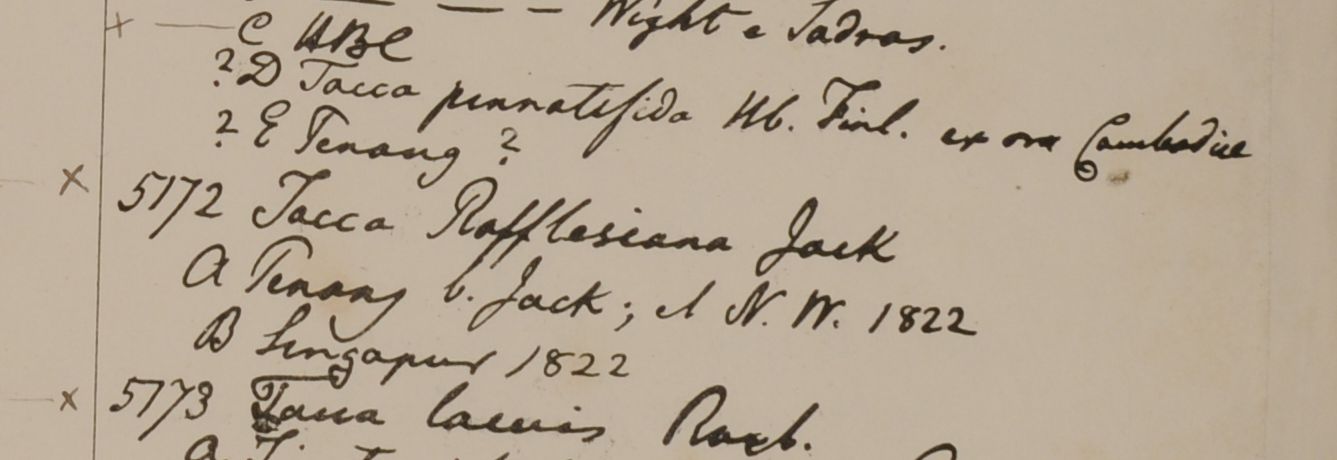 — — — Wight e Tadras.
C HBC
? D Tacca pinnatifida Hb. Finl. ex ora Cambodiae
? E Penang ?
5172 Tacca Rafflesiana Jack
A Penang b. Jack; N. W. 1822
B Singapur 1822
5173 Tacca laevis Roxb.
A